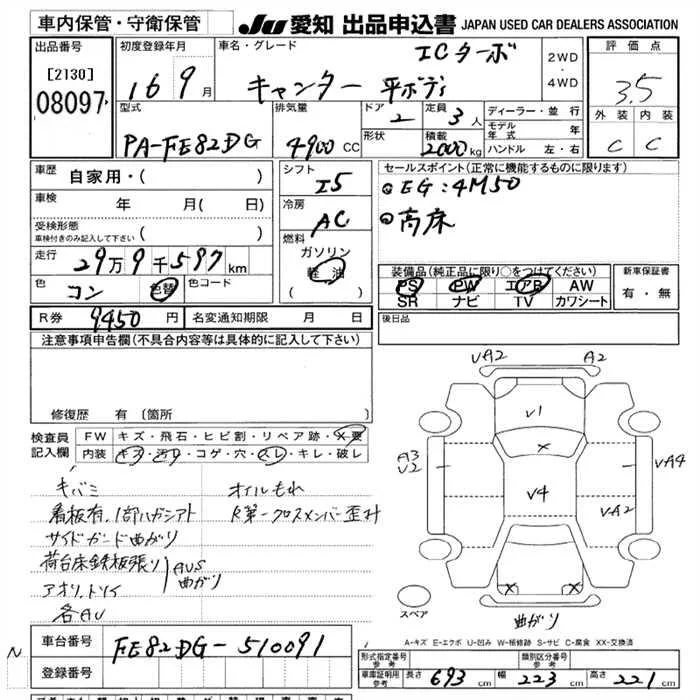 車内保管・守衛保管
JU 愛知 出品申込書 JAPAN USED CAR DEALERS ASSOCIATION
出品番号
[2130]
08097
初度登録年月
16 9月
車名・グレード
ICターボ
キャンター 平ボディ
2WD
・
4WD
評価点
3.5
外装 内装
C C
型式
PA-FE82DG
排気量
4900 CC
ドア
2
形状
定員
3人
積載
2000kg
ディーラー・並行
モデル年式 年
ハンドル 左・右
車歴
自家用・( )
車検
年 月( 日)
受検形態
車検付きのみ記入して下さい ( )
走行
29万9千597km
色
コン
色替
色コード
シフト
I5
冷房
AC
燃料
ガソリン
軽油
( )
セールスポイント(正常に機能するものに限ります)
◎EG:4M50
◎高床
装備品(純正品に限り○をつけてください)
PS PW エアB AW
SR ナビ TV カワシート
新車保証書
有・無
R券 9450 円
名変通知期限 月 日
後日品
注意事項申告欄(不具合内容等は具体的に記入して下さい)
修復歴 有 〔箇所
検査員記入欄
FW キズ・飛石・ヒビ割・リペア跡・X要
内装 キズ・汚れ・コゲ・穴・スレ・キレ・破レ
キバミ
オイルもれ
看板有、1部ハガシアト
R第一クロスメンバー歪み
サイドガード曲がり
荷台床鉄板張り
アオリ、トリイ
AUS
曲がり
各AU
VA2 A2
V1
X
A3
V2
V4
VA4
VA2
X X
スペア
曲がり
A-キズ E-エクボ U-凹み W-板修跡 S-サビ C-腐食 XX-交換済
N
車台番号
FE82DG-510091
登録番号
形式指定番号
参考
類別区分番号
参考
車庫証明用
参考
長さ 693 cm
幅 223 cm
高さ 221 cm